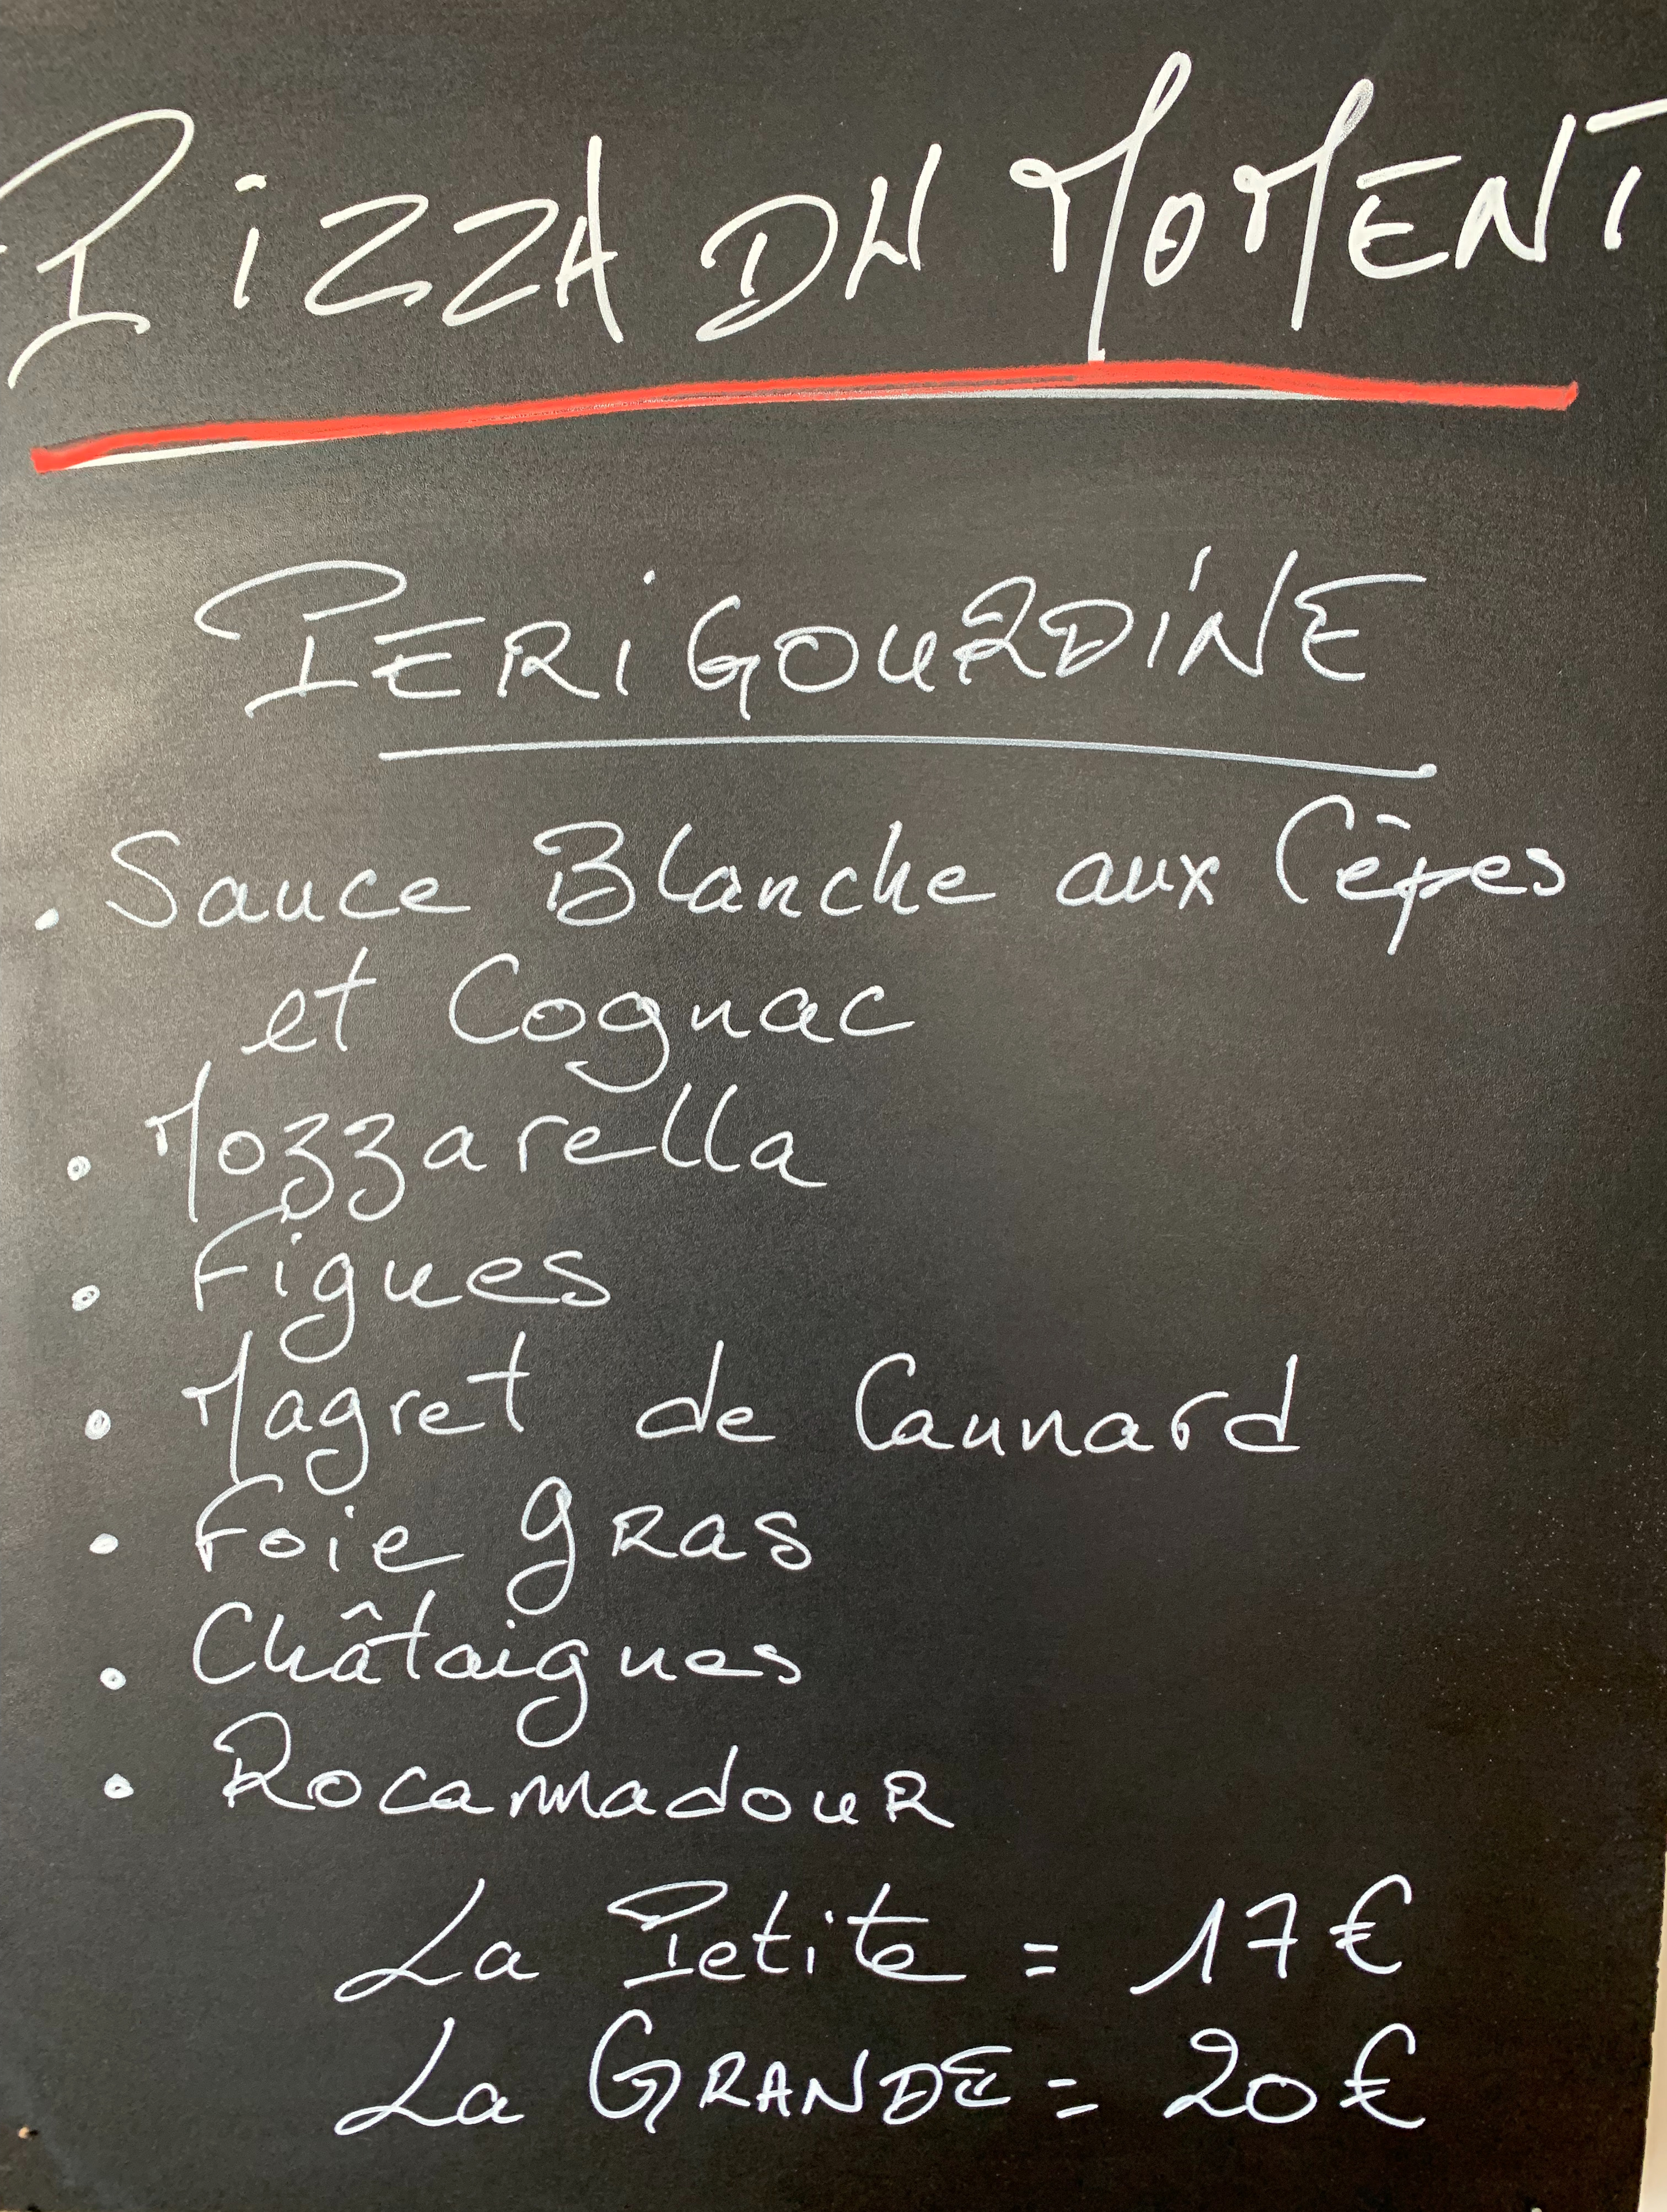 PIZZA DU MOMENT
PERIGOURDINE
. Sauce Blanche aux Cèpes
et Cognac
. Mozzarella
. Figues
. Magret de Cannard
. Foie gRas
. Châtaignes
. RocamadouR
La Petite = 17€
La GRANDE = 20€